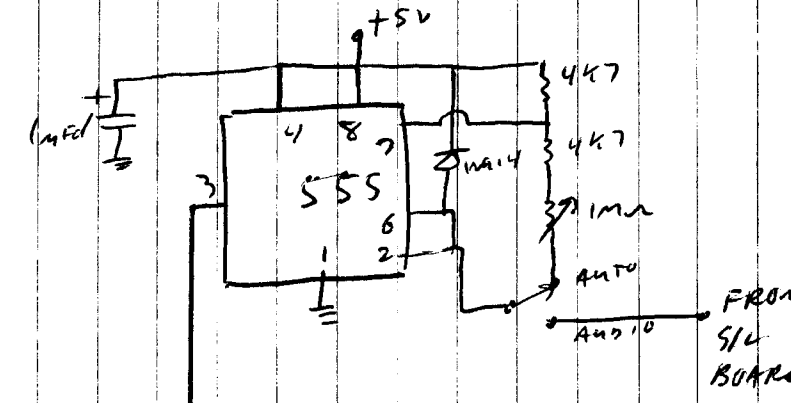 +5V
+
1MFD
4K7
4 8
7
4K7
3
555
6
1MΩ
1
2
AUTO
AUDIO
FROM
S/L
BOARD